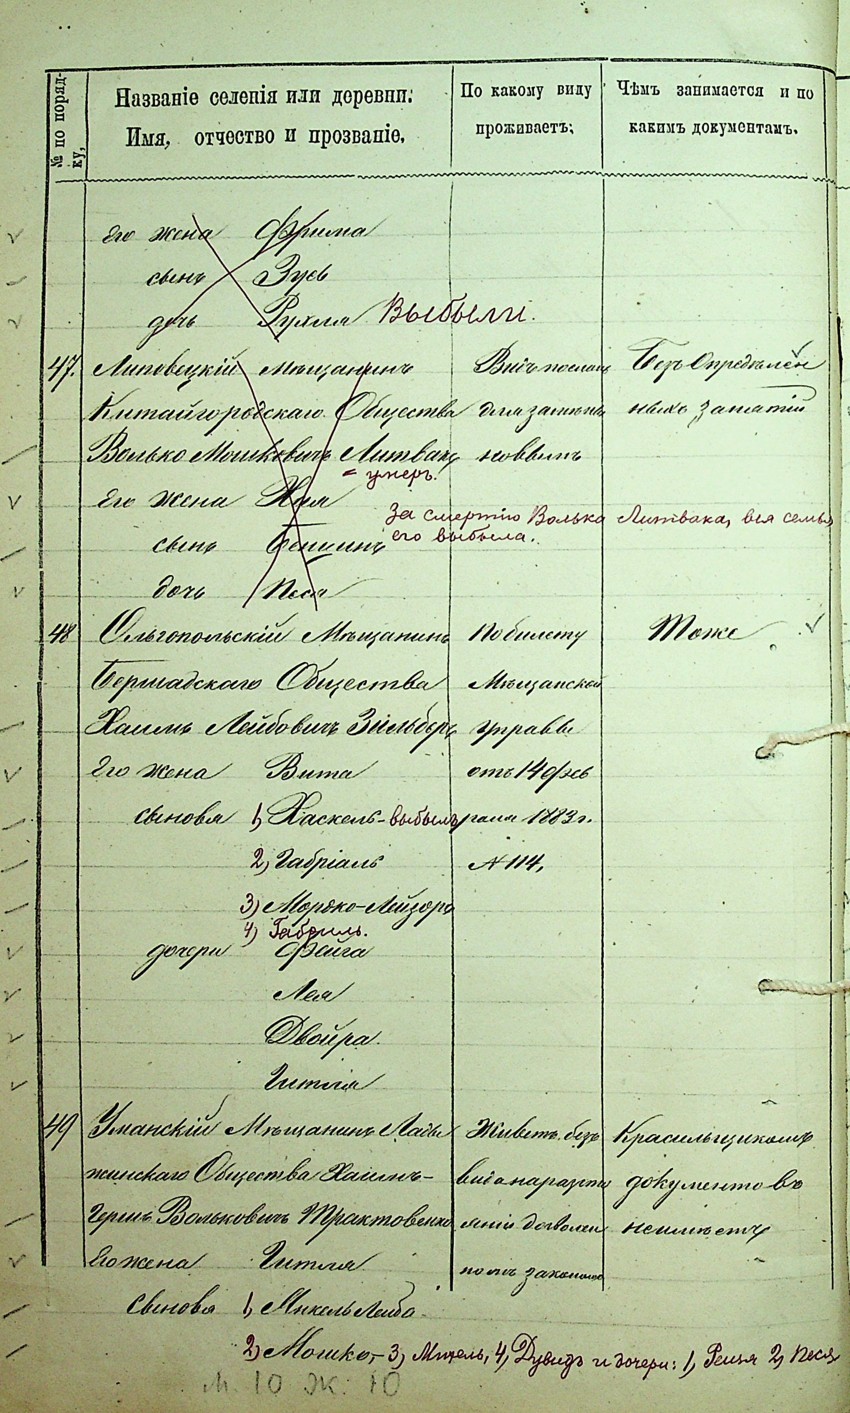 № по порядку,
Названіе селенія или деревни. Имя, отчество и прозваніе.
По какому виду проживаетъ:
Чѣмъ занимается и по какимъ документамъ.
Его жена Фрима
сынъ Зусь
дочь Рухля Выбыли.
47. Липовецкій Мѣщанинъ Видъ посланъ Безъ Опредѣлен
Китайгородскаго Общества для замѣны ныхъ занятій
Волько Мошковичъ Литвакъ новымъ
= умеръ.
Его жена Хая
За смертію Волька Литвака, вся семья
его выбыла.
сынъ
дочь Песя
48 Ольгопольскій Мѣщанинъ По билету Тоже
Бершадскаго Общества Мѣщанской
Хаимъ Лейбовичъ Зильберъ Управы
Его жена Вита отъ 14 фев
сыновья 1, Хаскель - выбылъ раля 1883 г.
2, Габріаль № 114,
3) Мордко-Лейзоръ
4) Габриль.
дочери Фейга
Лея
Двойра
Гитля
49 Уманскій Мѣщанинъ Лады Живетъ безъ Красильщикомъ
жинскаго Общества Хаимъ- вида на разсто документовъ
Гершъ Вольковичъ Трактовенко яніи дозволен неимѣетъ
Его жена Гитля номъ закономъ
сыновья 1, Лейба
2) Мошко, - 3) 4) Дувидъ и дочери: 1, 2) Песя
м. 10 ж. 10